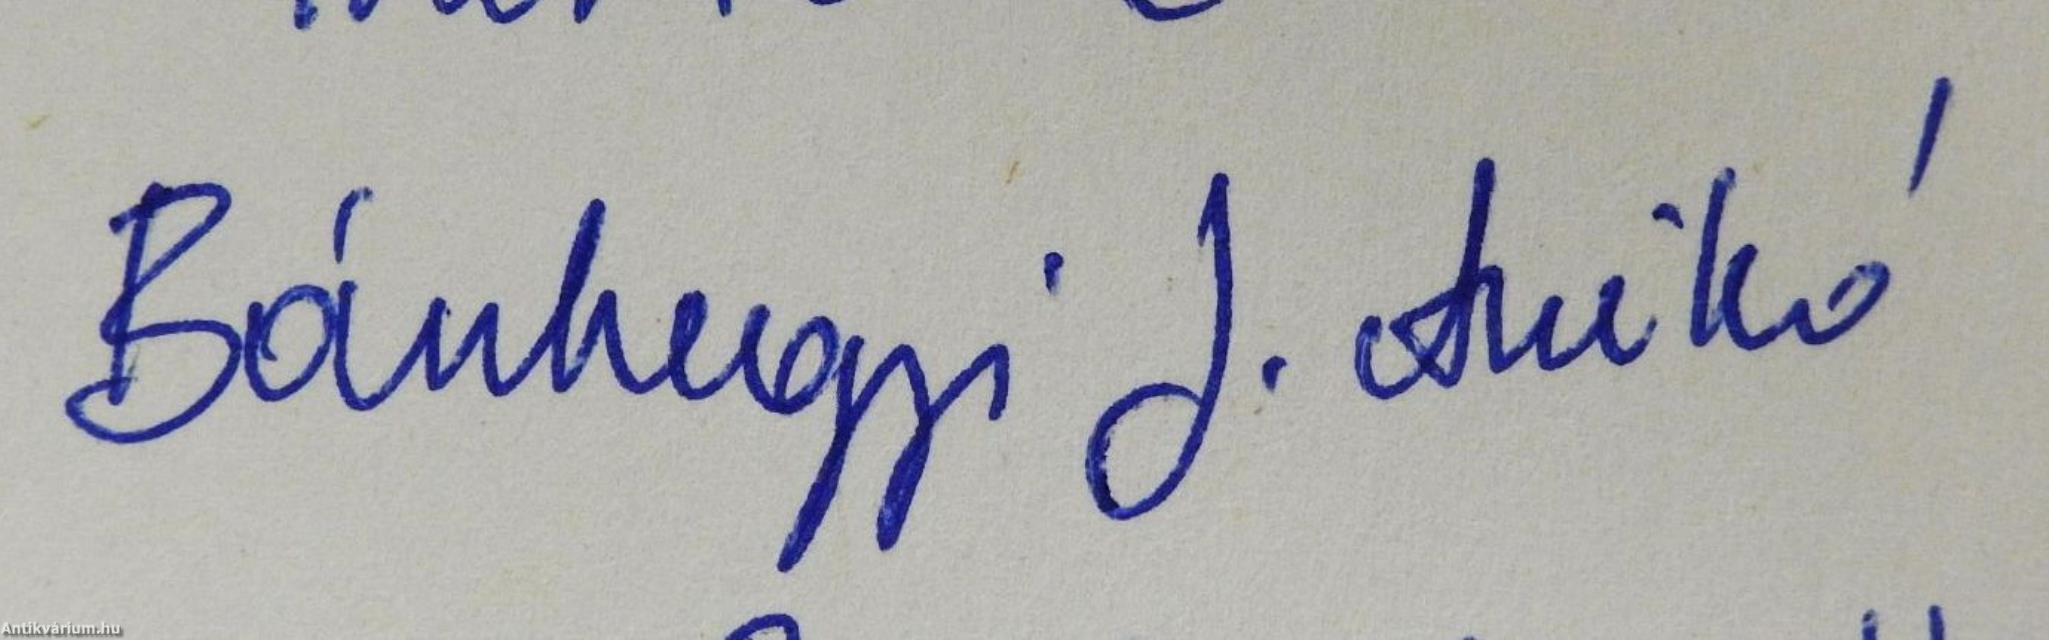 Bánhegyi J. Anikó
Antikvárium.hu